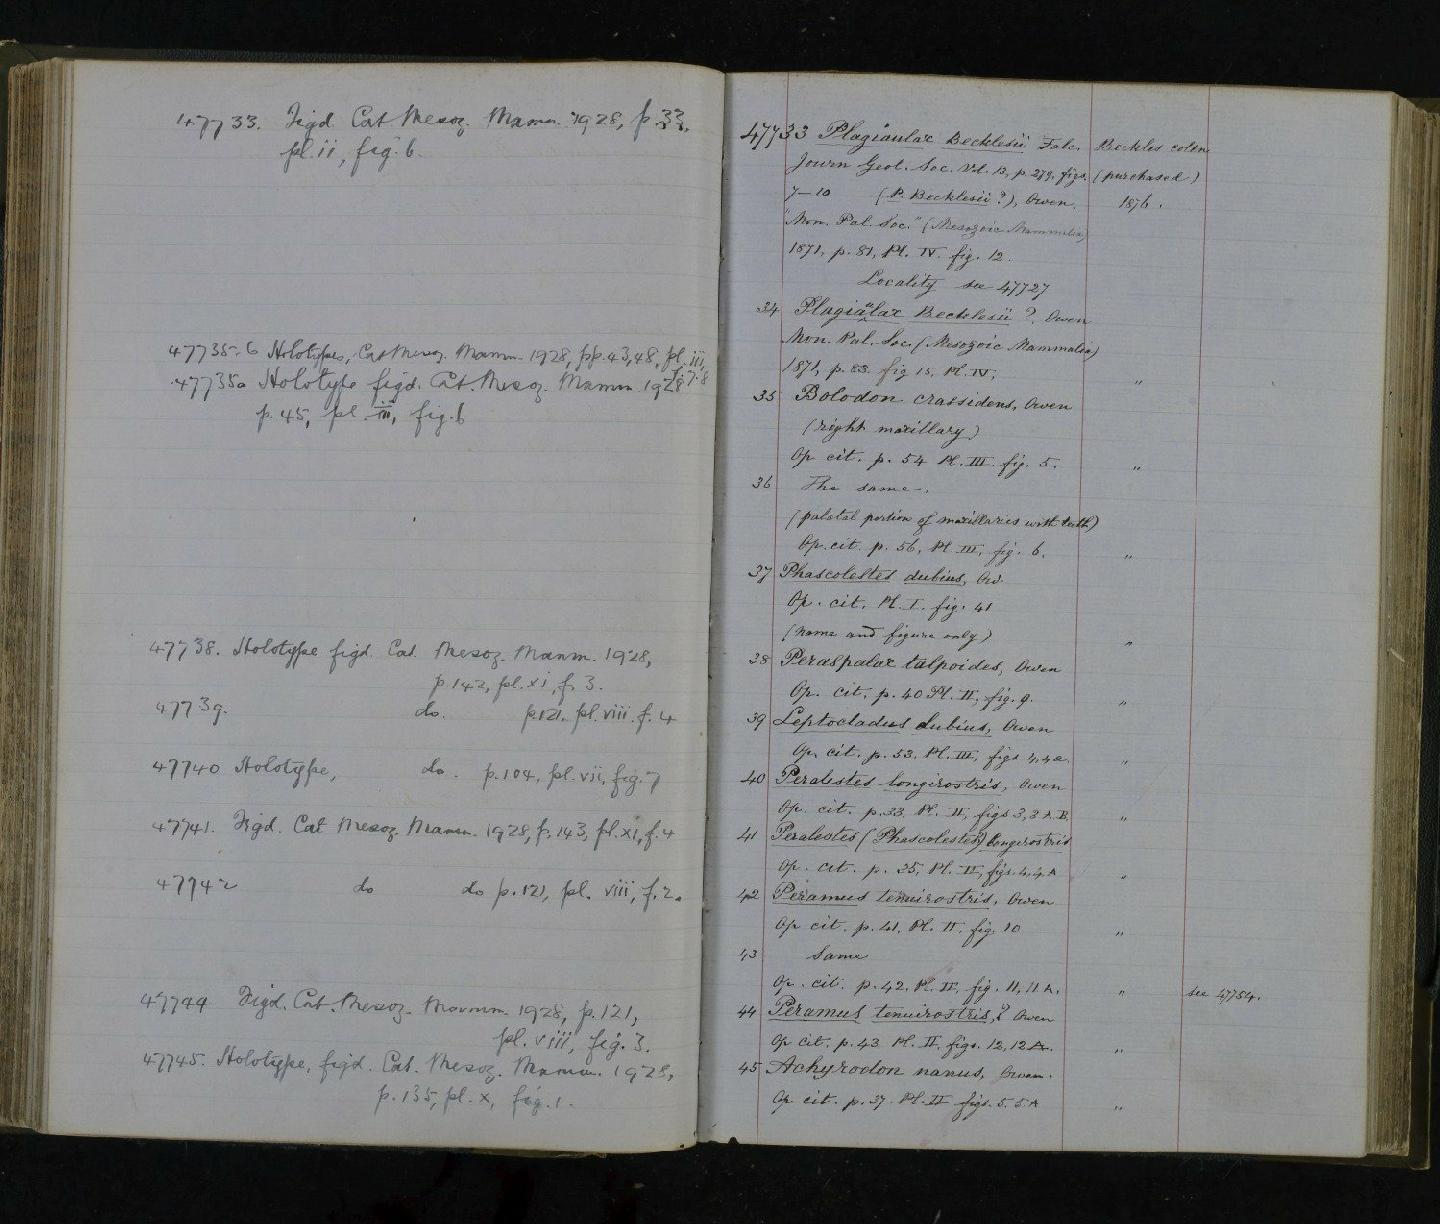 47733. Figd. Cat. Mesoz. Mamm. 1928, p. 33,
pl. ii, fig. 6.
47735-6 Holotypes, Cat. Mesoz. Mamm. 1928, pp. 43, 48, pl. iii,
f. 7. 8
47735a Holotype figd. Cat. Mesoz. Mamm 1928
p. 45, pl. iii, fig. 6
47738. Holotype figd. Cat. Mesoz. Mamm. 1928,
p. 142, pl. xi, f. 3.
47739. do. p. 121, pl. viii. f. 4
47740 Holotype, do. p. 104, pl. vii, fig. 7
47741. Figd. Cat Mesoz. Mamm. 1928, p. 143, pl. xi, f. 4
47742 do do p. 121, pl. viii, f. 2.
47744 Figd. Cat. Mesoz. Mamm. 1928, p. 121,
pl. viii, fig. 3.
47745. Holotype, figd. Cat. Mesoz. Mamm. 1928,
p. 135, pl. x, fig. 1.
47733 Plagiaulax Becklesii Falc. Beckles colln
Journ Geol. Soc. Vol. 13, p. 279, figs. (purchased)
7–10 (P. Becklesii ?), Owen. 1876.
"Mon. Pal. Soc." (Mesozoic Mammalia)
1871, p. 81, Pl. IV. fig. 12.
Locality see 47727
34 Plagiaulax Becklesii ? Owen
Mon. Pal. Soc. (Mesozoic Mammalia)
1871, p. 83. fig 15, Pl. IV, "
35 Bolodon crassidens, Owen
(right maxillary)
Op cit. p. 54 Pl. III. fig. 5. "
36 The same.
(palatal portion of maxillaries with teeth)
Op. cit. p. 56, Pl. III, fig. 6. "
37 Phascolestes dubius, Ow.
Op. cit. Pl. I. fig. 41
(name and figure only) "
38 Peraspalax talpoides, Owen
Op. cit. p. 40 Pl. II, fig. 9. "
39 Leptocladus dubius, Owen
Op. cit. p. 53. Pl. III, figs 4, 4a. "
40 Peralestes longirostris, Owen
Op. cit. p. 33. Pl. II, figs 3, 3 A. B. "
41 Peralestes (Phascolestes) longirostris
Op. cit. p. 35, Pl. II, figs. 4, 4 A "
42 Peramus tenuirostris, Owen
Op cit. p. 41, Pl. II. fig. 10 "
43 Same
Op. cit. p. 42. Pl. II, fig. 11, 11 A. " see 47754.
44 Peramus tenuirostris, ? Owen
Op cit. p. 43 Pl. II, figs. 12, 12 A. "
45 Achyrodon nanus, Owen.
Op. cit. p. 37. Pl. II figs. 5. 5 A "